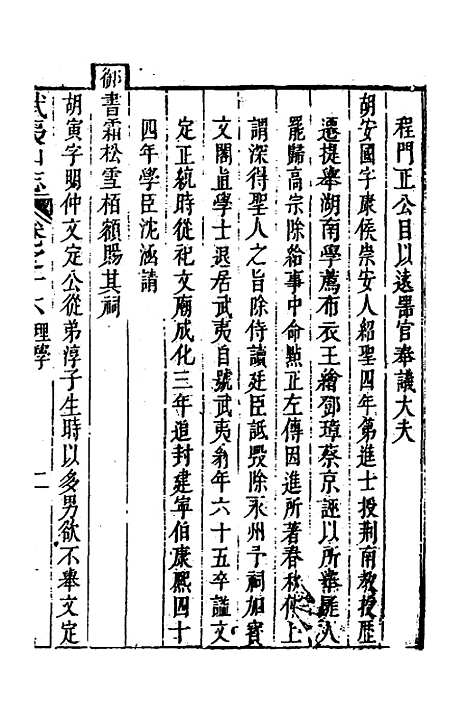 程門正公目以遠器官奉議大夫
胡安國字康侯崇安人紹聖四年第進士授荆南教授歴
遷提舉湖南學薦布衣王繪鄧璋蔡京誣以所舉匪人
罷歸高宗除給事中命點正左傳因進所著春秋傳上
謂深得聖人之旨除侍讀廷臣詆毀除永州予祠加寳
文閣直學士退居武夷自號武夷翁年六十五卒謚文
定正統時從祀文廟成化三年追封建寧伯康熙四十
四年學臣沈涵請
御書霜松雪栢額賜其祠
胡寅字明仲文定公從弟淳子生時以多男欲不舉文定
武夷山志 卷之十六 理學 二